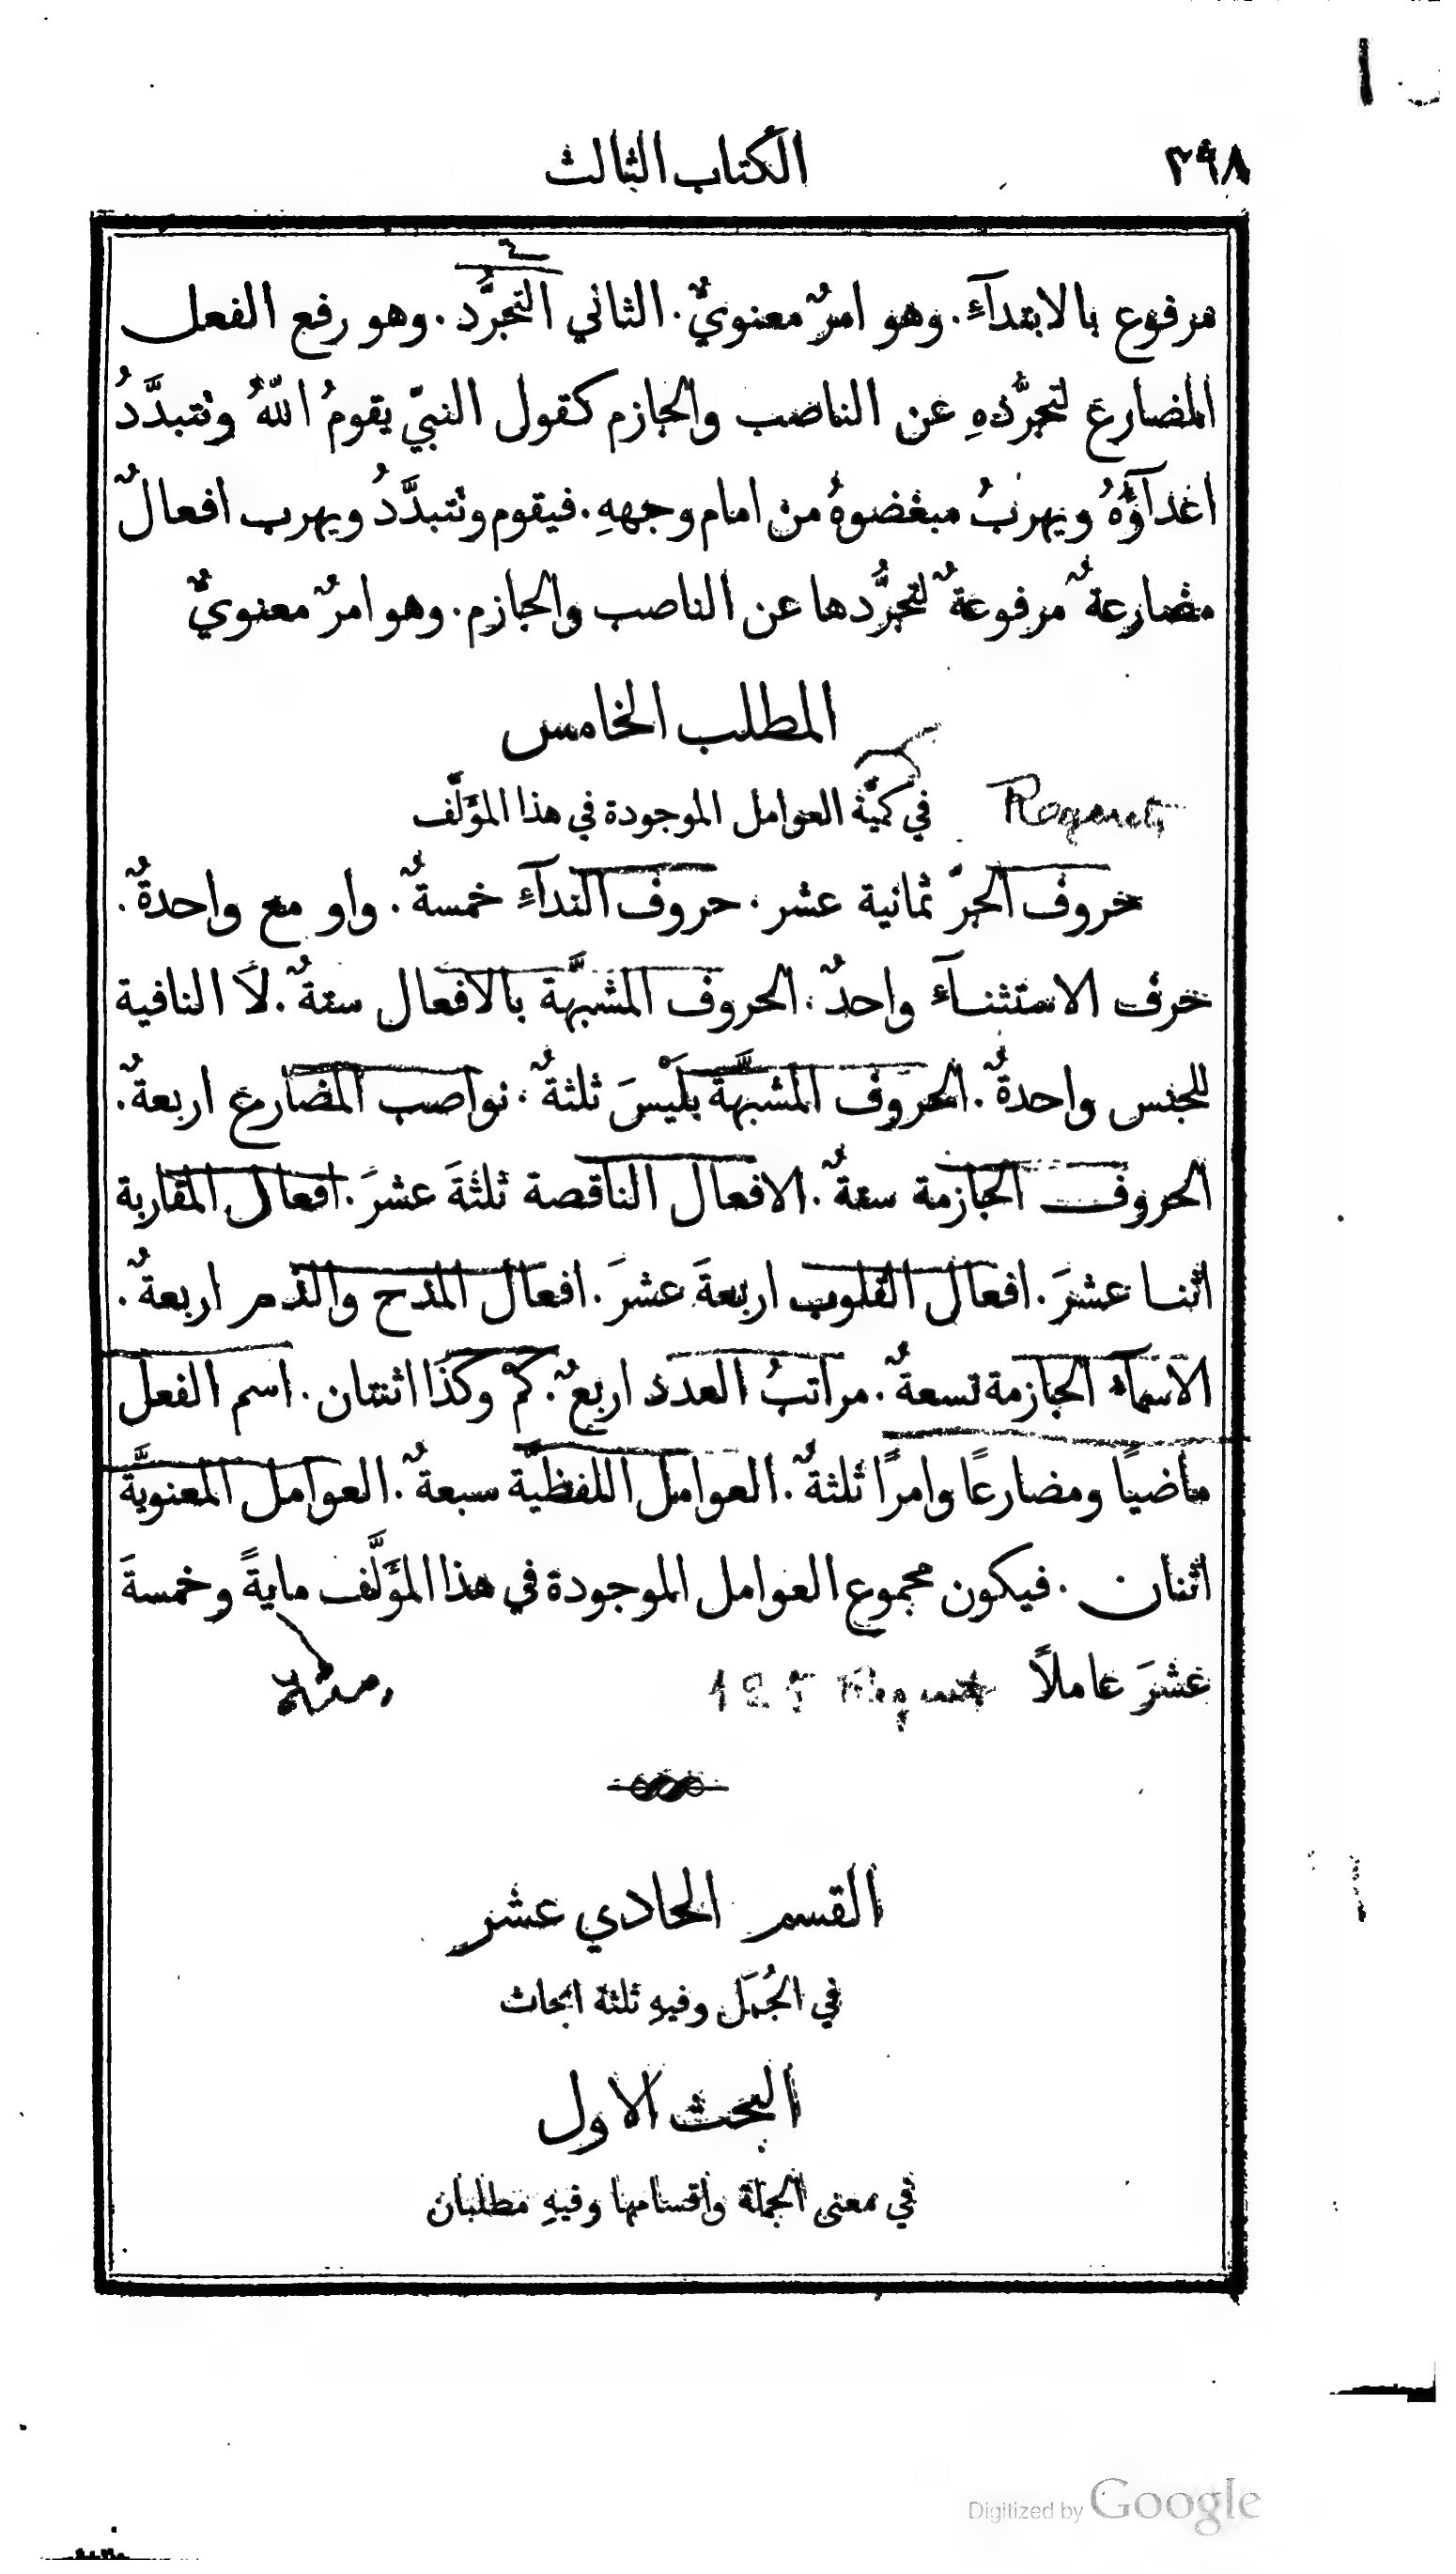 ٣٩٨
الكتاب الثالث
مرفوع بالابتدآء. وهو امرٌ معنويٌّ. الثاني التجرُّد. وهو رفع الفعل
المضارع لتجرُّدهِ عن الناصب والجازم كقول النبيّ يقومُ اللهُ وتتبدَّدُ
اعدآؤُهُ ويهربُ مبغضوهُ من امام وجههِ. فيقوم وتتبدَّدُ ويهرب افعالٌ
مضارعةٌ مرفوعةٌ لتجرُّدها عن الناصب والجازم. وهو امرٌ معنويٌّ
المطلب الخامس
في كميَّة العوامل الموجودة في هذا المؤَلَّف
حروف الجرّ ثمانية عشر. حروف الندآءِ خمسةٌ. واو مع واحدةٌ.
حرف الاستثنآء واحدٌ. الحروف المشبَّهة بالافعال ستةٌ. لَا النافية
للجنس واحدةٌ. الحروف المشبَّهة بلَيْسَ ثلثةٌ. نواصب المضارع اربعةٌ.
الحروف الجازمة ستةٌ. الافعال الناقصة ثلثةَ عشرَ. افعال المقاربة
اثنا عشرَ. افعال القلوب اربعةَ عشرَ. افعال المدح والذم اربعةٌ.
الاسمآء الجازمة تسعةٌ. مراتبُ العدد اربعٌ. كمْ وكذا اثنتان. اسم الفعل
ماضيًا ومضارعًا وامرًا ثلثةٌ. العوامل اللفظيَّة سبعةٌ. العوامل المعنويَّة
اثنان. فيكون مجموع العوامل الموجودة في هذا المؤَلَّف مايةً وخمسةَ
عشرَ عاملًا
القسم الحادي عشر
في الجُمَل وفيهِ ثلثة ابحاث
البحث الاول
في معنى الجملة واقسامها وفيهِ مطلبان
Digitized by Google